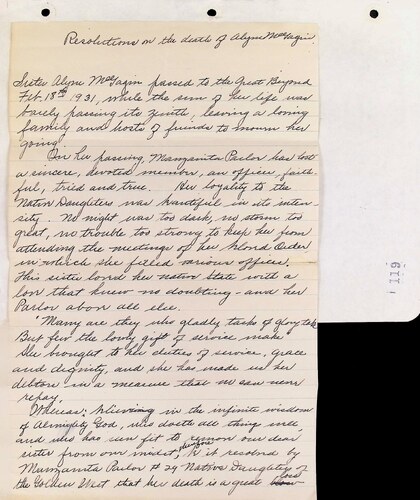 Resolutions on the death of Alyne McGagin.
Sister Alyne McGagin passed to the Great Beyond
Feb. 18th 1931, while the sun of her life was
barely passing its zenith, leaving a loving
family and hosts of friends to mourn her
going.
In her passing, Manzanita Parlor has lost
a sincere, devoted member, an officer, faith-
ful, tried and true. Her loyality to the
Native Daughters was beautiful in its inten-
sity. No night was too dark, no storm too
great, no trouble too strong to keep her from
attending the meetings of her loved Order
in which she filled various offices.
This sister loved her native State with a
love that knew no doubting - and her
Parlor above all else.
"Many are they who gladly tasks of glory take
But few the lovly gift of service make"
She brought to her duties of service, grace
and dignity, and she has made us her
debtors in a measure that we can never
repay.
Whereas; believing in the infinite wisdom
of Almighty God, who doeth all things well,
and who has seen fit to remove our dear
sister from our midst, therefore be it resolved by
Manzanita Parlor # 29 Native Daughters of
the Golden West that her death is a great loss
119